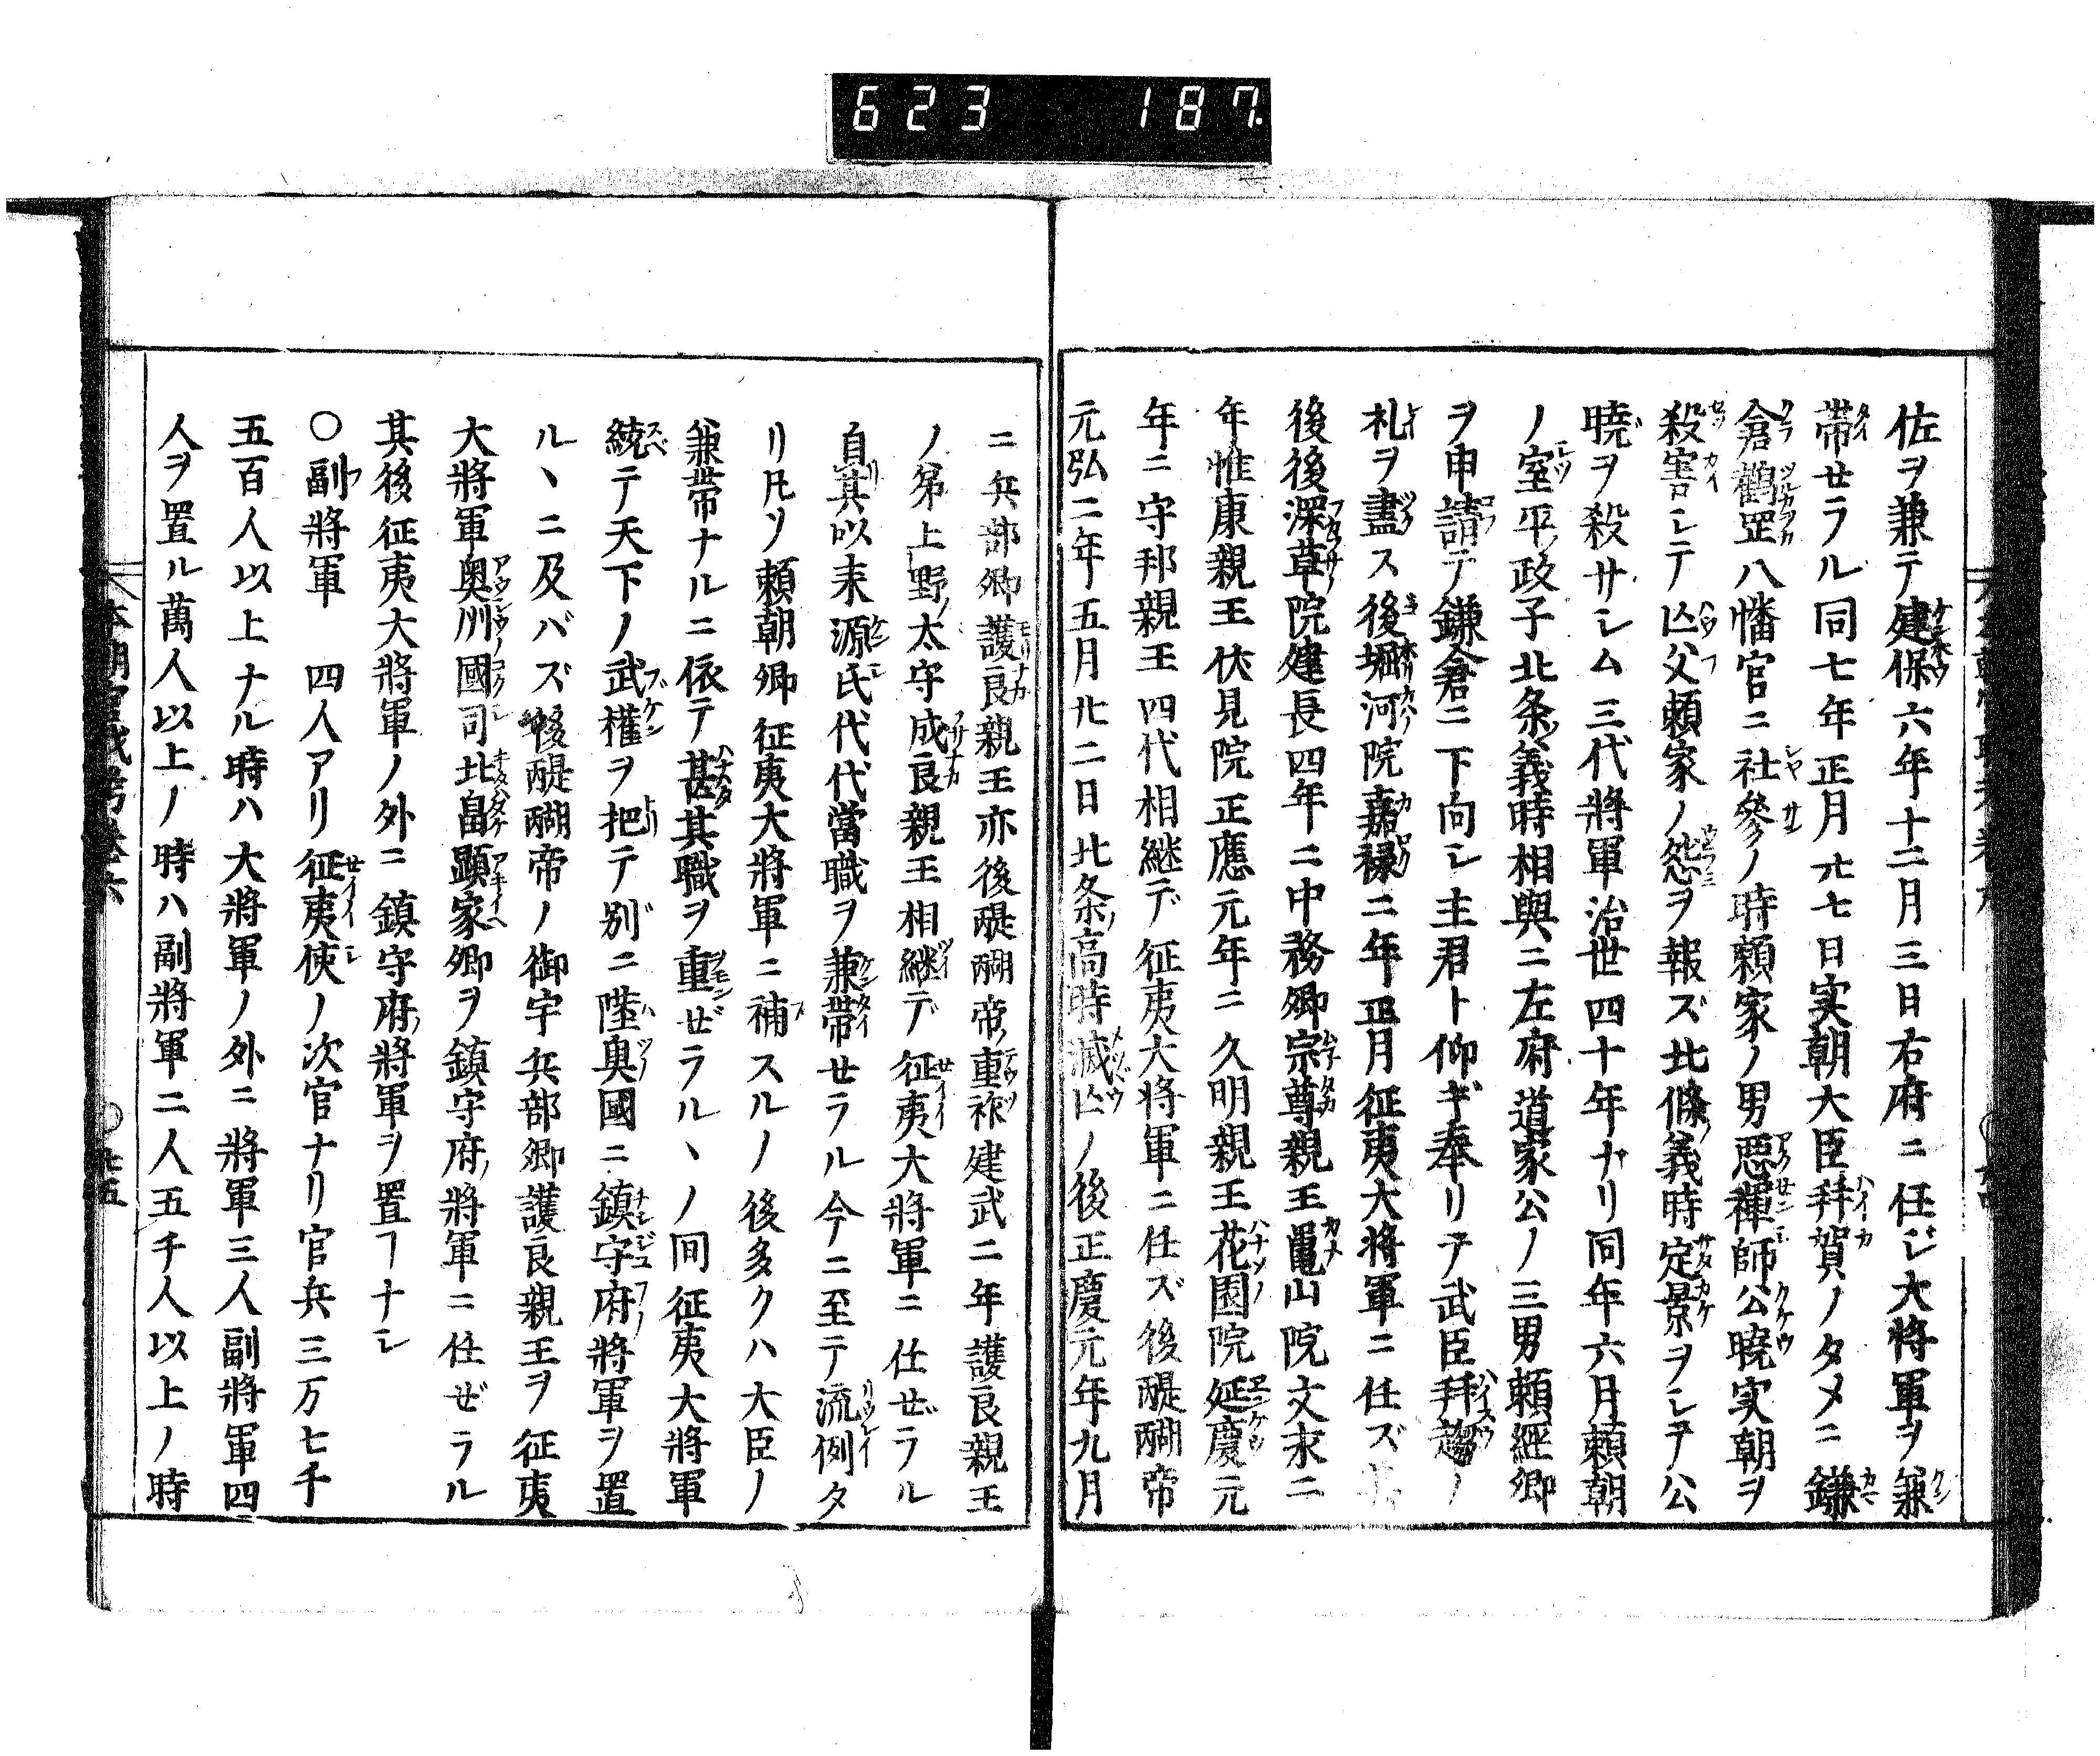 623 187.
佐ヲ兼テ建保六年十二月三日右府ニ任ジ大将軍ヲ兼
帯せラル同七年正月廾七日実朝大臣拜賀ノタメニ鎌
倉鶴罡八幡宮ニ社參ノ時頼家ノ男惡禅師公曉実朝ヲ
殺害シテ亾父頼家ノ怨ヲ報ズ北條義時定景ヲシテ公
曉ヲ殺サシム三代將軍治世四十年ナリ同年六月頼朝
ノ室平政子北条義時相與ニ左府道家公ノ三男頼經卿
ヲ申請テ鎌倉ニ下向シ主君ト仰ギ奉リテ武臣拜趨ノ
礼ヲ盡ス後堀河院嘉禄二年正月征夷大将軍ニ任ズ其
後後深草院建長四年ニ中務卿宗尊親王亀山院文永二
年惟康親王伏見院正應元年ニ久明親王花園院延慶元
年ニ守邦親王四代相継デ征夷大将軍ニ任ズ後醍醐帝
元弘二年五月廾二日北条高時滅亾ノ後正慶元年九月
ニ兵部卿護良親王亦後醍醐帝重祚建武二年護良親王
ノ弟上野太守成良親王相継デ征夷大將軍ニ任ぜラル
自其以来源氏代代當職ヲ兼帯せラル今ニ至テ流例タ
リ凡ソ頼朝卿征夷大將軍ニ補スルノ後多クハ大臣ノ
兼帯ナルニ依テ甚其職ヲ重ぜラルヽノ間征夷大將軍
統テ天下ノ武權ヲ把テ別ニ陸奥國ニ鎮守府將軍ヲ置
ルヽニ及バズ後醍醐帝ノ御宇兵部卿護良親王ヲ征夷
大將軍奥州國司北畠顕家卿ヲ鎮守府將軍ニ任ぜラル
其後征夷大將軍ノ外ニ鎮守府將軍ヲ置ヿナシ
○副將軍 四人アリ征夷使ノ次官ナリ官兵三万七千
五百人以上ナル時ハ大將軍ノ外ニ將軍三人副將軍四
人ヲ置ル萬人以上ノ時ハ副將軍二人五千人以上ノ時
本朝官職考巻六 廾五